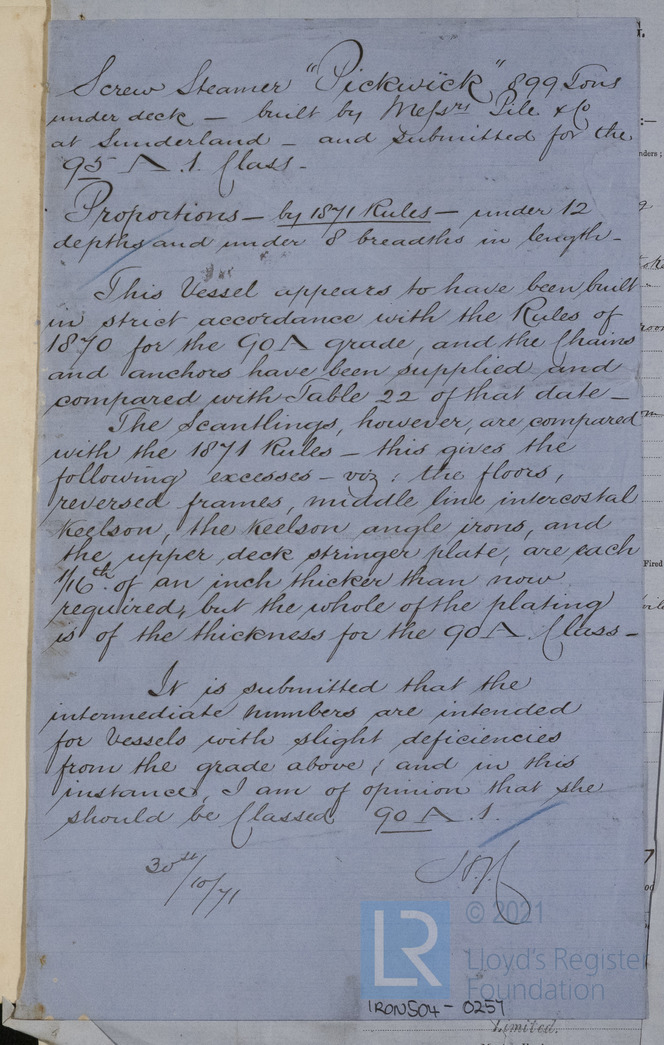 Screw Steamer "Pickwick" 899 Tons
under deck – built by Messrs Pile & Co
at Sunderland – and submitted for the
95 A .1. Class –
Proportions – by 1871 Rules – under 12
depths and under 8 breadths in length –
This Vessel appears to have been built
in strict accordance with the Rules of
1870 for the 90 A grade, and the Chains
and anchors have been supplied and
compared with Table 22 of that date –
The Scantlings, however, are compared
with the 1871 Rules – this gives the
following excesses – viz: the floors,
reversed frames, middle line intercostal
Keelson, the Keelson angle irons, and
the upper deck stringer plate, are each
1/16th of an inch thicker than now
required, but the whole of the plating
is of the thickness for the 90 A Class –
It is submitted that the
intermediate numbers are intended
for Vessels with slight deficiencies
from the grade above; and in this
instance, I am of opinion that she
should be Classed 90 A .1.
30st/10/71
LR
© 2021
Lloyd's Register
Foundation
IRON504 - 0257
Limited.